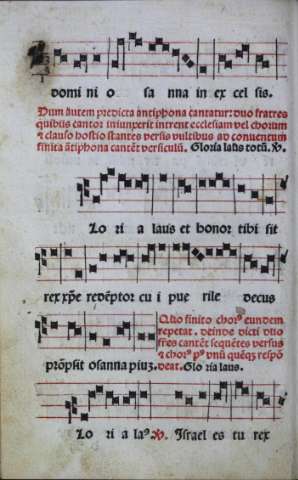 domi ni o sa nna in ex cel sis.
Dum autem predicta antiphona cantatur: duo fratres
quibus cantor iniunxerit intrent ecclesiam vel chorum
& clauso hostio stantes versis vultibus ad conuentum
finita antiphona cantēt versiculū. Gloria laus totū. V.
Lo ri a laus et honor tibi sit
rex xp̄e redēptor cu i pue rile decus
prōpsit osanna piuʒ.
Quo finito chorꝰ eundem
repetat. deinde dicti duo
fr̄es cantēt sequētes versus
& chorꝰ pꝰ vnū quēqʒ respō
deat. Glo ria laus.
Lo ri a laꝰ V. Israel es tu rex